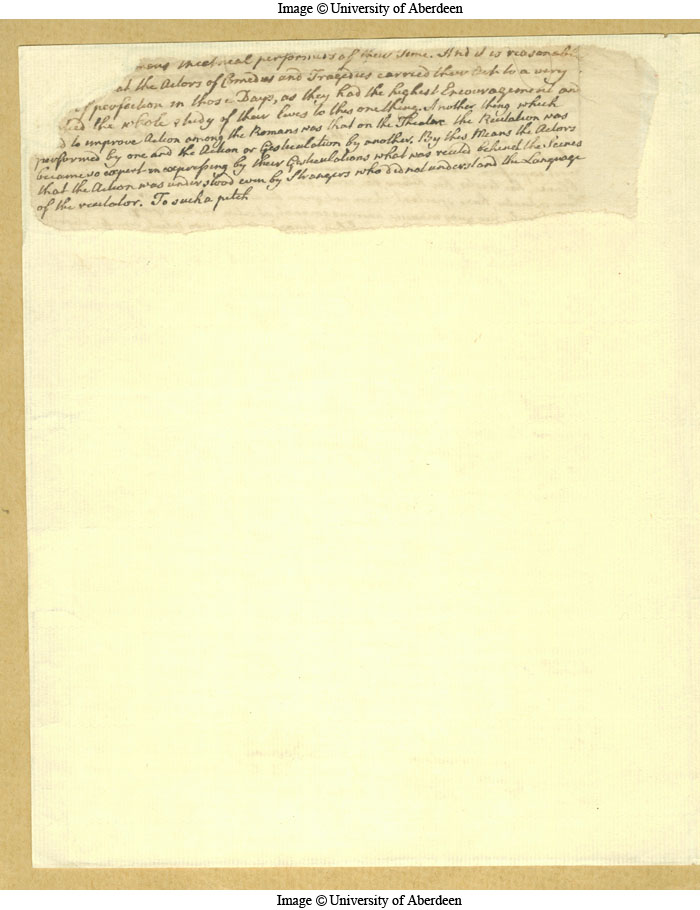 Image © University of Aberdeen
performers of their time. And it is reasonabl
at the Actors of Comedies and Tragedies carried their Art to a very
perfection in those Days, as they had the highest Encouragement an
the whole study of their lives to this one thing. Another thing which
d to improve Action among the Romans was that on the Theatre the Recitation was
performed by one and the Action or Gesticulation by another. By this Means the Actors
became so expert in expressing by their Gesticulations what was recited behind the Scenes
that the Action was understood even by Strangers who did not understand the Language
of the recitator. To such a pitch
Image © University of Aberdeen